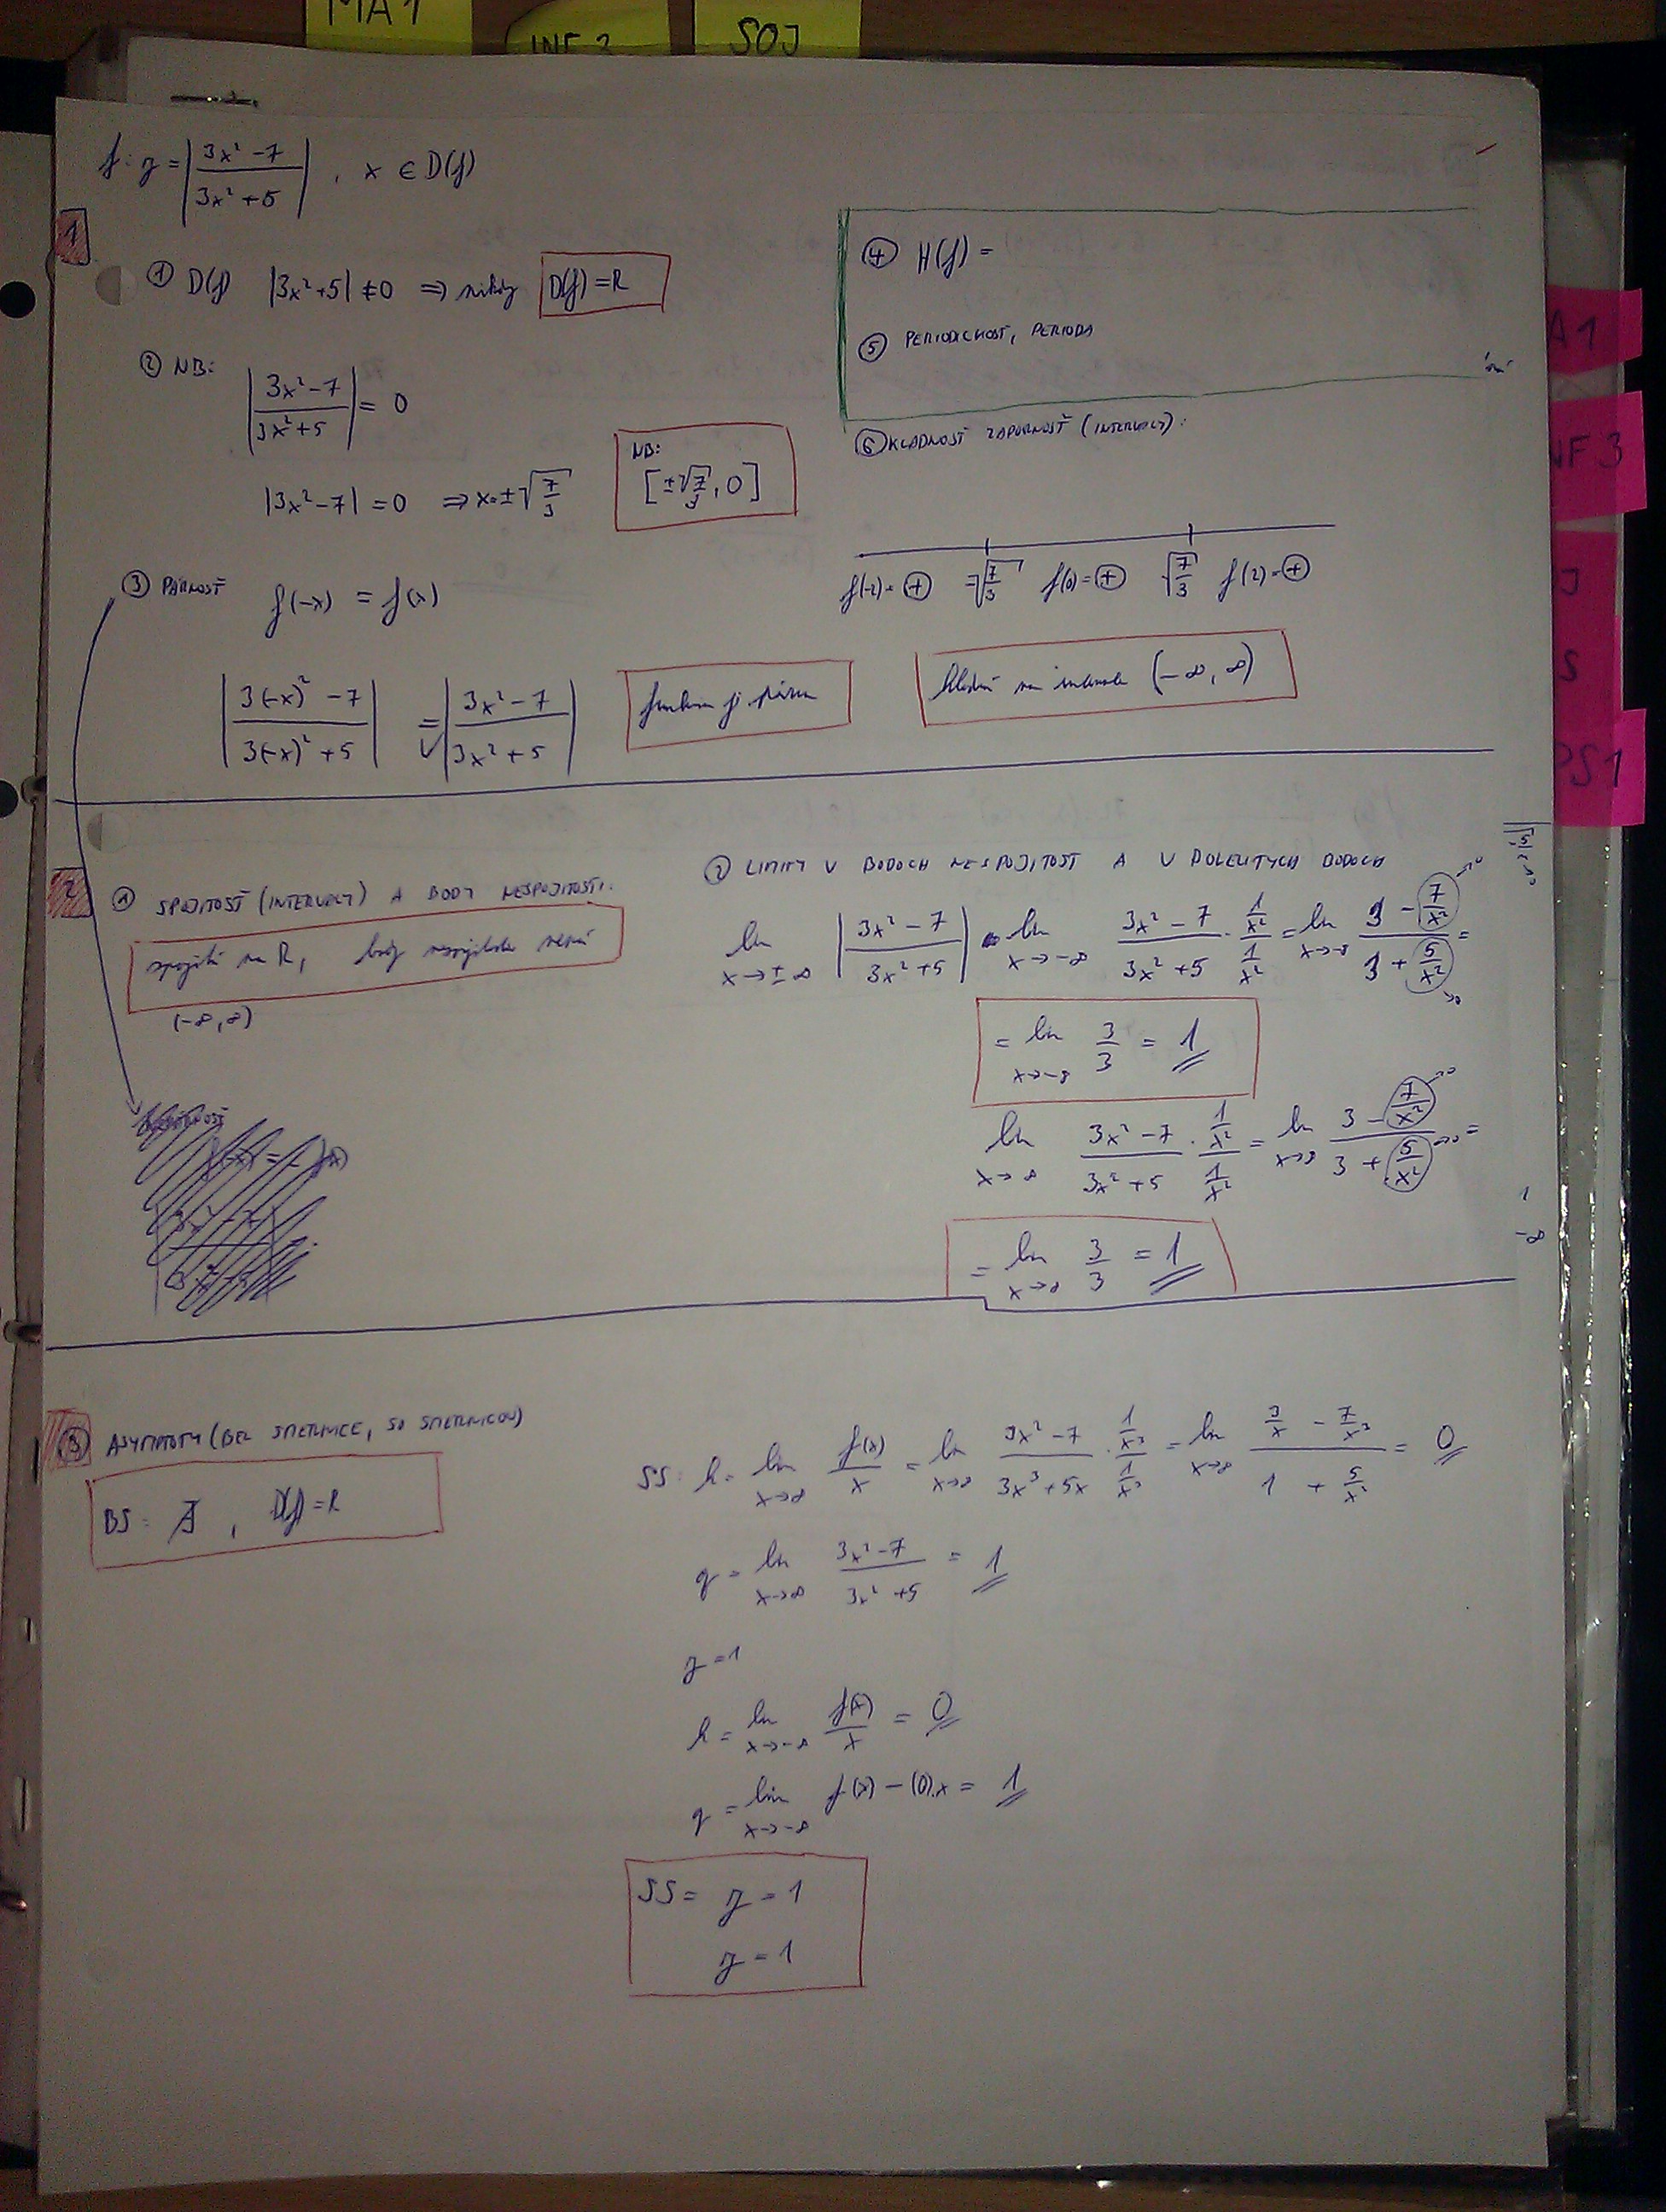 MA1
INF 3
SOJ
f: y = |(3x² - 7)/(3x² + 5)| , x ∈ D(f)
1
① D(f) |3x²+5| ≠ 0 ⇒ nikdy D(f) = R
② NB:
|(3x² - 7)/(3x² + 5)| = 0
|3x² - 7| = 0 ⇒ x = ±√(7/3)
NB:
[±√(7/3), 0]
③ PÁRNOSŤ f(-x) = f(x)
|(3(-x)² - 7)/(3(-x)² + 5)| = |(3x² - 7)/(3x² + 5)|
funkcia je párna
④ H(f) =
⑤ PERIODICNOSŤ, PERIODA
⑥ KLADNOSŤ ZÁPORNOSŤ (INTERVALY):
f(-2) = ⊕ -√(7/3) f(0) = ⊕ √(7/3) f(2) = ⊕
kladná na intervale (-∞, ∞)
2
① SPOJITOSŤ (INTERVALY) A BODY NESPOJITOSTI:
spojitá na R, body nespojitosti nemá
(-∞, ∞)
② LIMITY V BODOCH NESPOJITOST A V DOLEZITYCH BODOCH
lim x→±∞ |(3x² - 7)/(3x² + 5)| = lim x→-∞ (3x² - 7)/(3x² + 5) · (1/x²)/(1/x²) = lim x→-∞ (3 - 7/x²)/(3 + 5/x²) =
= lim x→-∞ 3/3 = 1
lim x→∞ (3x² - 7)/(3x² + 5) · (1/x²)/(1/x²) = lim x→∞ (3 - 7/x²)/(3 + 5/x²) =
= lim x→∞ 3/3 = 1
③ ASYMPTOTY (BEZ SMERNICE, SO SMERNICOU)
BS = ∄ , D(f) = R
SS: k = lim x→∞ f(x)/x = lim x→∞ (3x² - 7)/(3x³ + 5x) · (1/x³)/(1/x³) = lim x→∞ (3/x - 7/x³)/(1 + 5/x²) = 0
q = lim x→∞ (3x² - 7)/(3x² + 5) = 1
y = 1
k = lim x→-∞ f(x)/x = 0
q = lim x→-∞ f(x) - (0).x = 1
SS = y = 1
y = 1
A1
NF 3
J
S
PS1